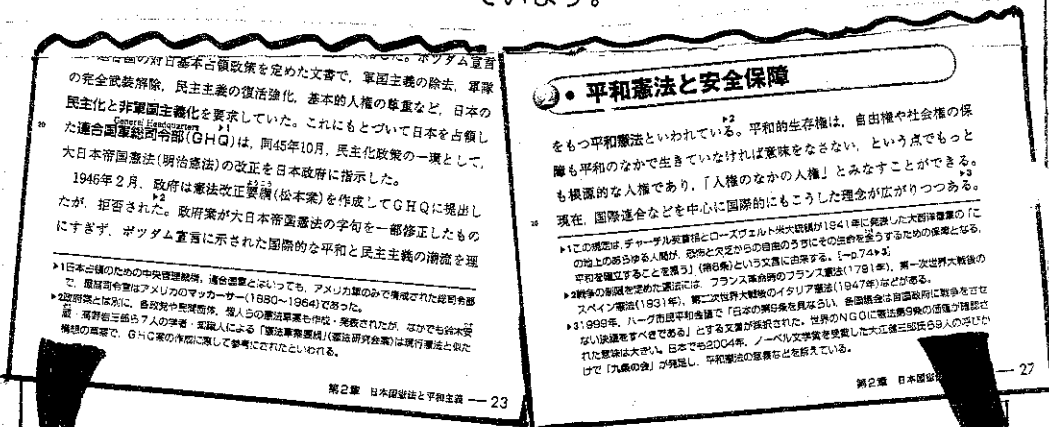 ていよう。
の対日基本占領政策を定めた文書で，軍国主義の除去，軍隊
の完全武装解除，民主主義の復活強化，基本的人権の尊重など，日本の
民主化と非軍国主義化を要求していた。これにもとづいて日本を占領し
General Headquarters ▸1
20 た連合国軍総司令部(GHQ)は，同45年10月，民主化政策の一環として，
大日本帝国憲法(明治憲法)の改正を日本政府に指示した。
1946年2月，政府は憲法改正要綱(松本案)を作成してGHQに提出し
▸2
たが，拒否された。政府案が大日本帝国憲法の字句を一部修正したもの
にすぎず，ポツダム宣言に示された国際的な平和と民主主義の潮流を理
▸1日本占領のための中央管理機構。連合国軍とはいっても，アメリカ軍のみで構成された総司令部
で，最高司令官はアメリカのマッカーサー(1880〜1964)であった。
▸2政府案とは別に，各政党や民間団体，個人らの憲法草案も作成・発表されたが，なかでも鈴木安
蔵・高野岩三郎ら7人の学者・知識人による「憲法草案要綱」(憲法研究会案)は現行憲法と似た
構想の草案で，GHQ案の作成に際して参考にされたといわれる。
第2章 日本国憲法と平和主義 — 23
②・平和憲法と安全保障
▸2
をもつ平和憲法といわれている。平和的生存権は，自由権や社会権の保
障も平和のなかで生きていなければ意味をなさない，という点でもっと
も根源的な人権であり，「人権のなかの人権」とみなすことができる。
▸3
20 現在，国際連合などを中心に国際的にもこうした理念が広がりつつある。
▸1この規定は，チャーチル英首相とローズヴェルト米大統領が1941年に発表した大西洋憲章の「こ
の地上のあらゆる人間が，恐怖と欠乏からの自由のうちにその生命を全うするための保障となる，
平和を確立することを願う」(第6条)という文言に由来する。[→p.74▸3]
▸2戦争の制限を定めた憲法には，フランス革命時のフランス憲法(1791年)，第一次世界大戦後の
スペイン憲法(1931年)，第二次世界大戦後のイタリア憲法(1947年)などがある。
▸31999年，ハーグ市民平和会議で「日本の第9条を見ならい，各国議会は自国政府に戦争をさせ
ない決議をすべきである」とする文書が採択された。世界のNGOに憲法第9条の価値が確認さ
れた意味は大きい。日本でも2004年，ノーベル文学賞を受賞した大江健三郎氏ら9人の呼びか
けで「九条の会」が発足し，平和憲法の意義などを訴えている。
第2章 日本国憲 — 27